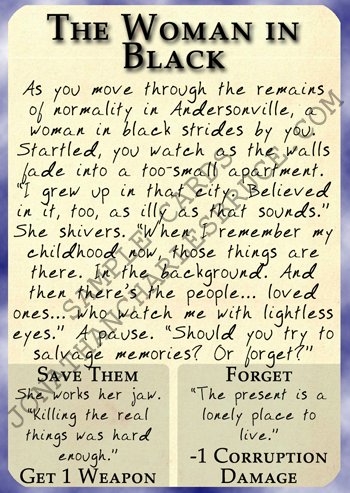 The Woman in
Black
As you move through the remains
of normality in Andersonville, a
woman in black strides by you.
Startled, you watch as the walls
fade into a too-small apartment.
"I grew up in that city. Believed
in it, too, as illy as that sounds."
She shivers. "When I remember my
childhood now, those things are
there. In the background. And
then there's the people... loved
ones... who watch me with lightless
eyes." A pause. "Should you try to
salvage memories? Or forget?"
Save Them
She works her jaw.
"Killing the real
things was hard
enough."
Get 1 Weapon
Forget
"The present is a
lonely place to
live."
-1 Corruption
Damage
SAMPLE CARDS
JONATHANCHARLESBRUCE.COM